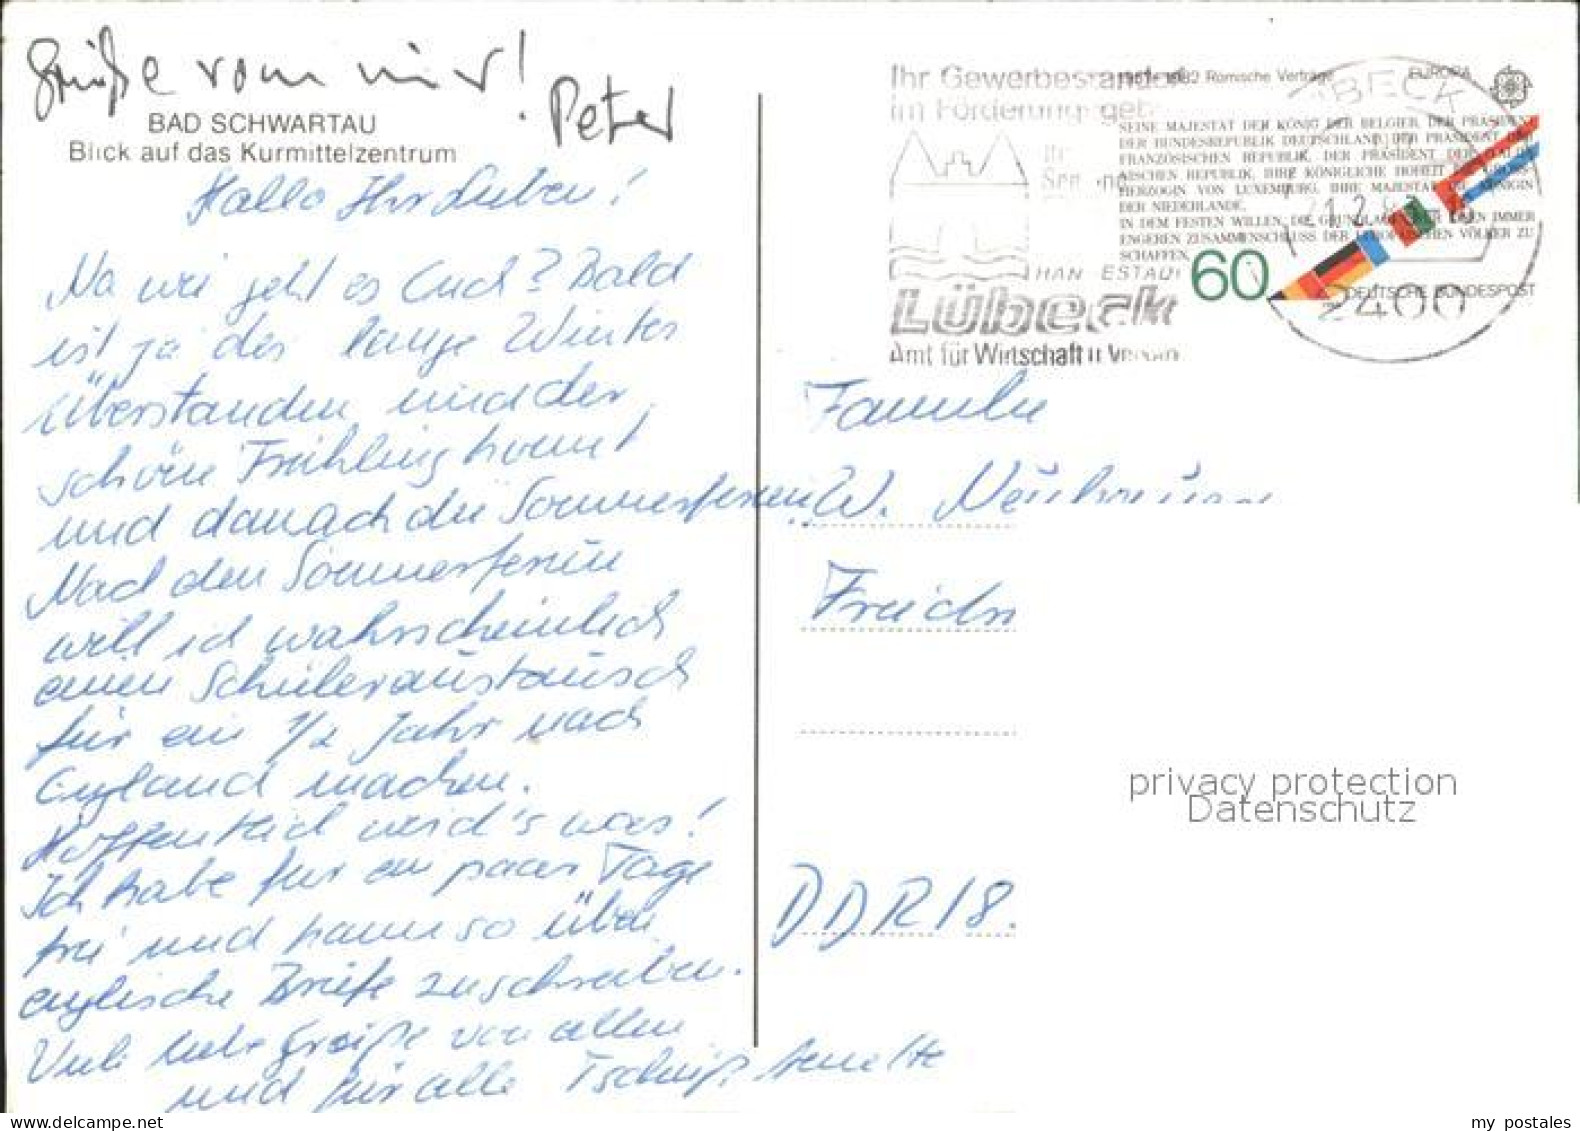 Grüße von mir!
Peter
BAD SCHWARTAU
Blick auf das Kurmittelzentrum
Hallo Ihr Lieben!
Na wie geht es Euch? Bald
ist ja der lange Winter
überstanden und der
schöne Frühling kommt
und danach die Sommerferien.
Nach den Sommerferien
will ich wahrscheinlich
einen Schüleraustausch
für ein 1/2 Jahr nach
England machen.
Hoffentlich wird's was!
Ich habe für ein paar Tage
frei und kann so üben
englische Briefe zu schreiben.
Viele liebe Grüße von allen
und für alle Tschüß Anette
Ihr Gewerbestandort
im Förderungsgeb
HANSESTADT
Lübeck
Amt für Wirtschaft u
1982 Römische Verträge
EUROPA
SEINE MAJESTÄT DER KÖNIG DER BELGIER, DER PRÄSIDENT
DER BUNDESREPUBLIK DEUTSCHLAND, DER PRÄSIDENT DER
FRANZÖSISCHEN REPUBLIK, DER PRÄSIDENT DER ITALIE-
NISCHEN REPUBLIK, IHRE KÖNIGLICHE HOHEIT DIE GROSS-
HERZOGIN VON LUXEMBURG, IHRE MAJESTÄT DIE KÖNIGIN
DER NIEDERLANDE,
IN DEM FESTEN WILLEN, DIE GRUNDLAGEN FÜR EINEN IMMER
ENGEREN ZUSAMMENSCHLUSS DER EUROPÄISCHEN VÖLKER ZU
SCHAFFEN,
60
DEUTSCHE BUNDESPOST
LÜBECK
2400
Familie
W.
DDR 18.
privacy protection
Datenschutz
www.delcampe.net
my postales